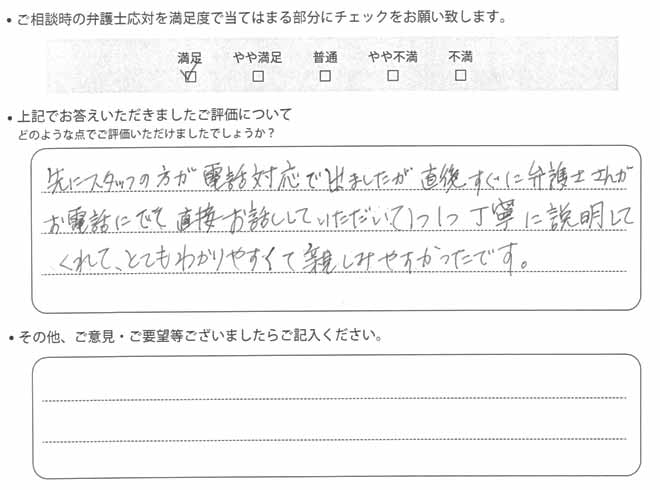 • ご相談時の弁護士応対を満足度で当てはまる部分にチェックをお願い致します。
満足 やや満足 普通 やや不満 不満
☑ □ □ □ □
• 上記でお答えいただきましたご評価について
どのような点でご評価いただけましたでしょうか?
先にスタッフの方が電話対応で出ましたが直後すぐに弁護士さんが
お電話にでて直接お話ししていただいて1つ1つ丁寧に説明して
くれて、とてもわかりやすくて親しみやすかったです。
• その他、ご意見・ご要望等ございましたらご記入ください。